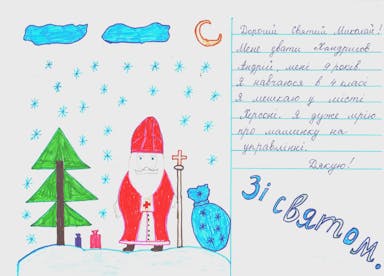 Дорогий Святий Миколай!
Мене звати Хандрисов
Андрій, мені 9 років.
Я навчаюся в 4 класі
Я мешкаю у місті
Херсоні. Я дуже мрію
про машинку на
управлінні.
Дякую!
Зі святом.